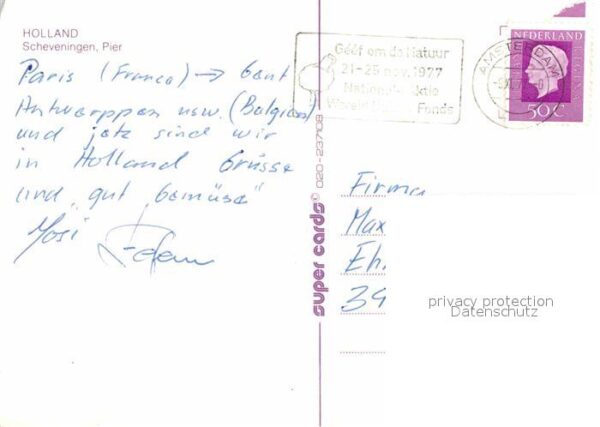 HOLLAND
Scheveningen, Pier
Paris (France) → Gent
Antwerppen usw. (Belgien)
und jetz sind wir
in Holland Grüsse
und "gut Gemüse"
Geéf om de Natuur
21-25 nov. 1977
Nationale Aktie
Wereld Fonds
AMSTERDAM
NEDERLAND
50c
super cards © 020-237108
Firma
Max
Eh.
39
privacy protection
Datenschutz